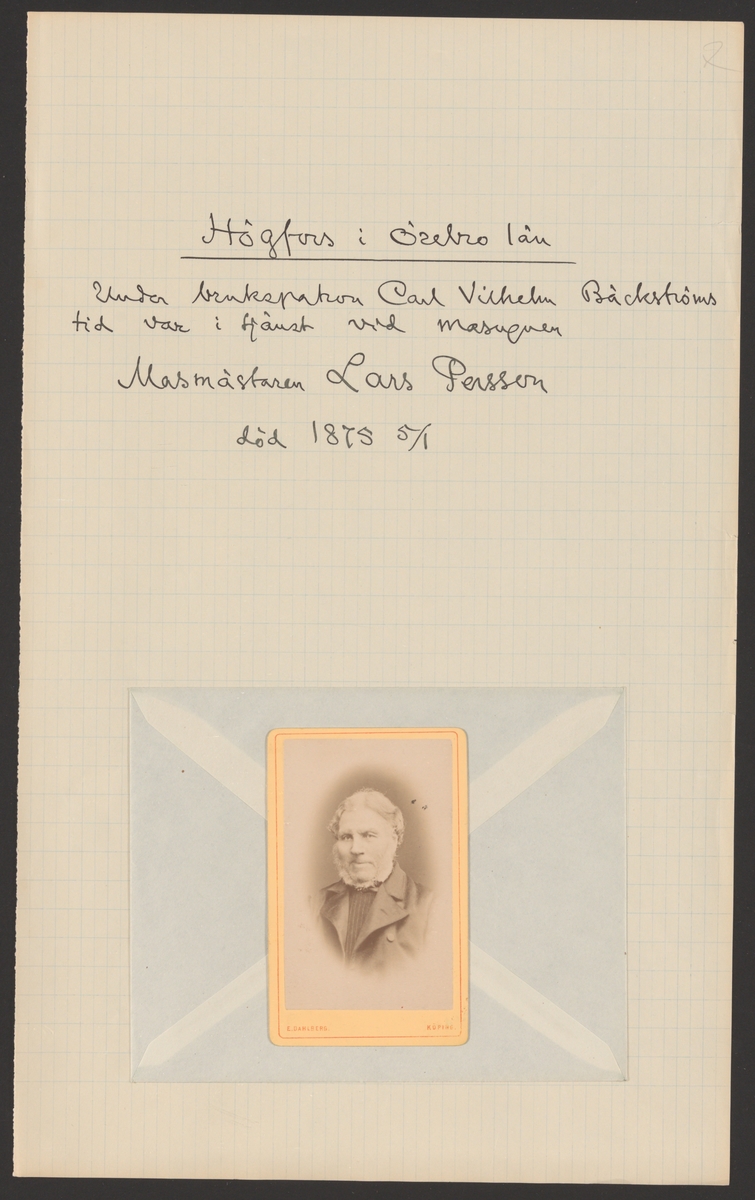 2
Högfors i Örebro län
Under brukspatron Carl Vilhelm Bäckströms
tid var i tjänst vid masugnen
Masmästaren Lars Persson
död 1875 5/1
E. DAHLBERG. KÖPING.